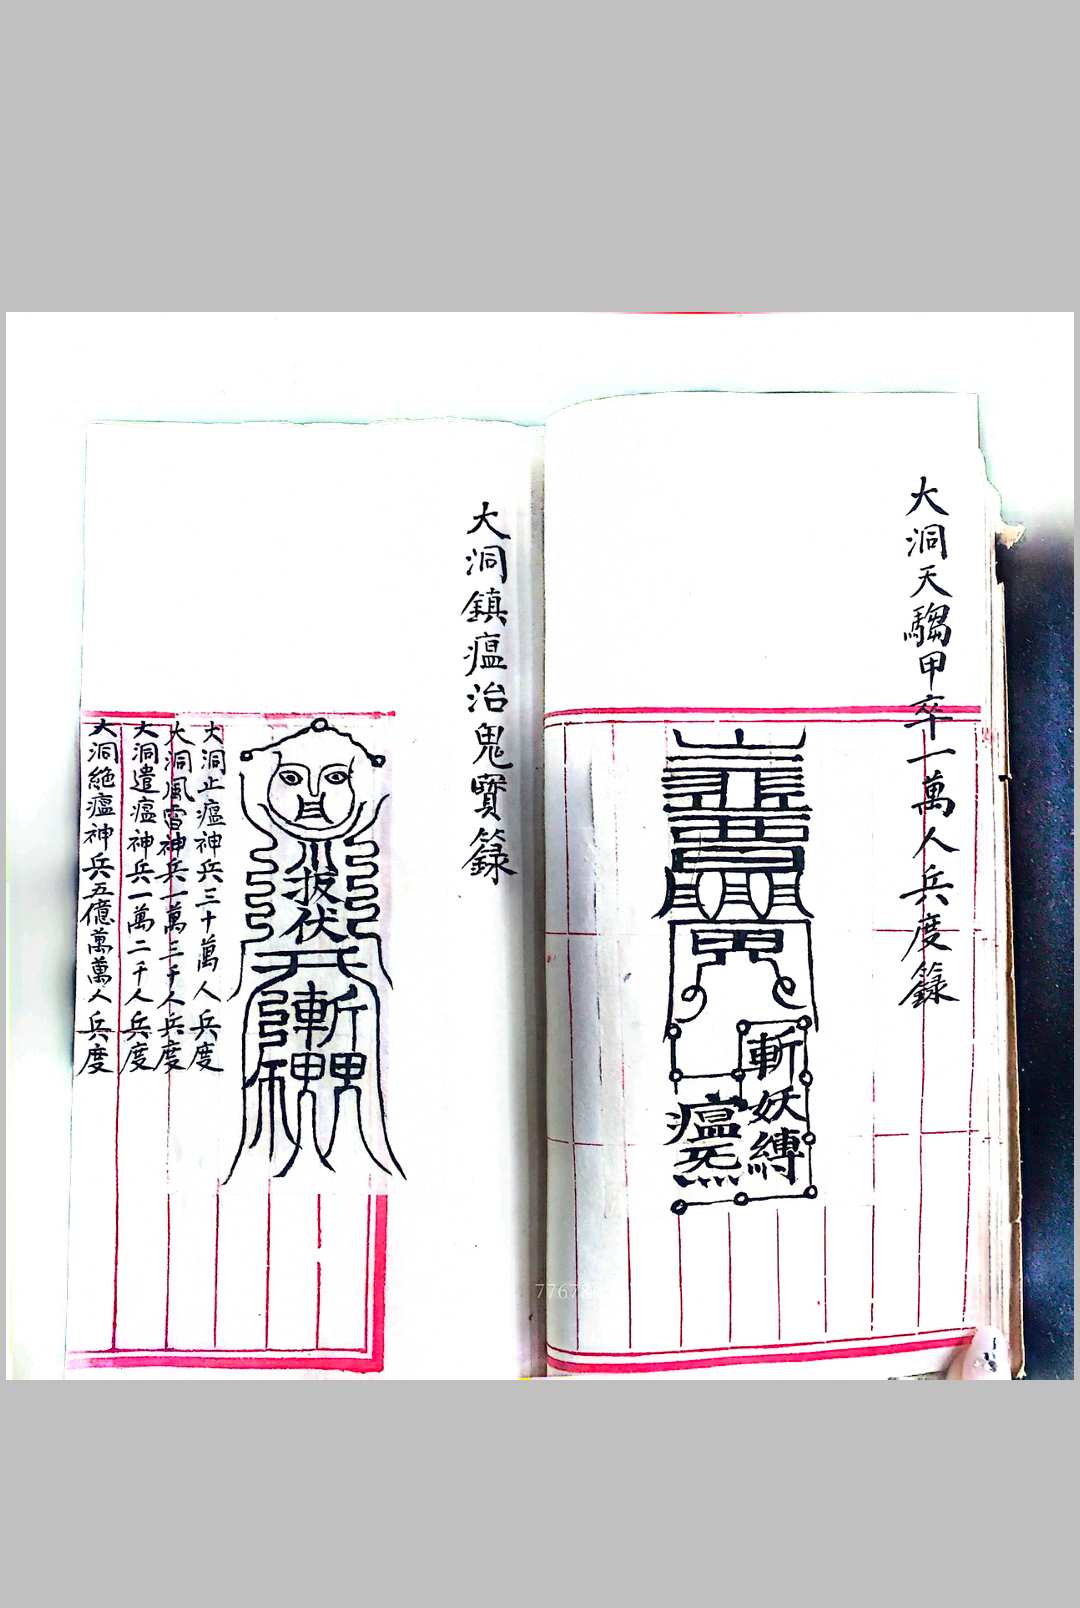 大洞天騶甲卒一萬人兵度籙
斬妖縛
瘟炁
大洞鎮瘟治鬼寶籙
拔伏
斬
大洞止瘟神兵三十萬人兵度
大洞風雷神兵一萬三千人兵度
大洞遣瘟神兵一萬二千人兵度
大洞絕瘟神兵五億萬萬人兵度